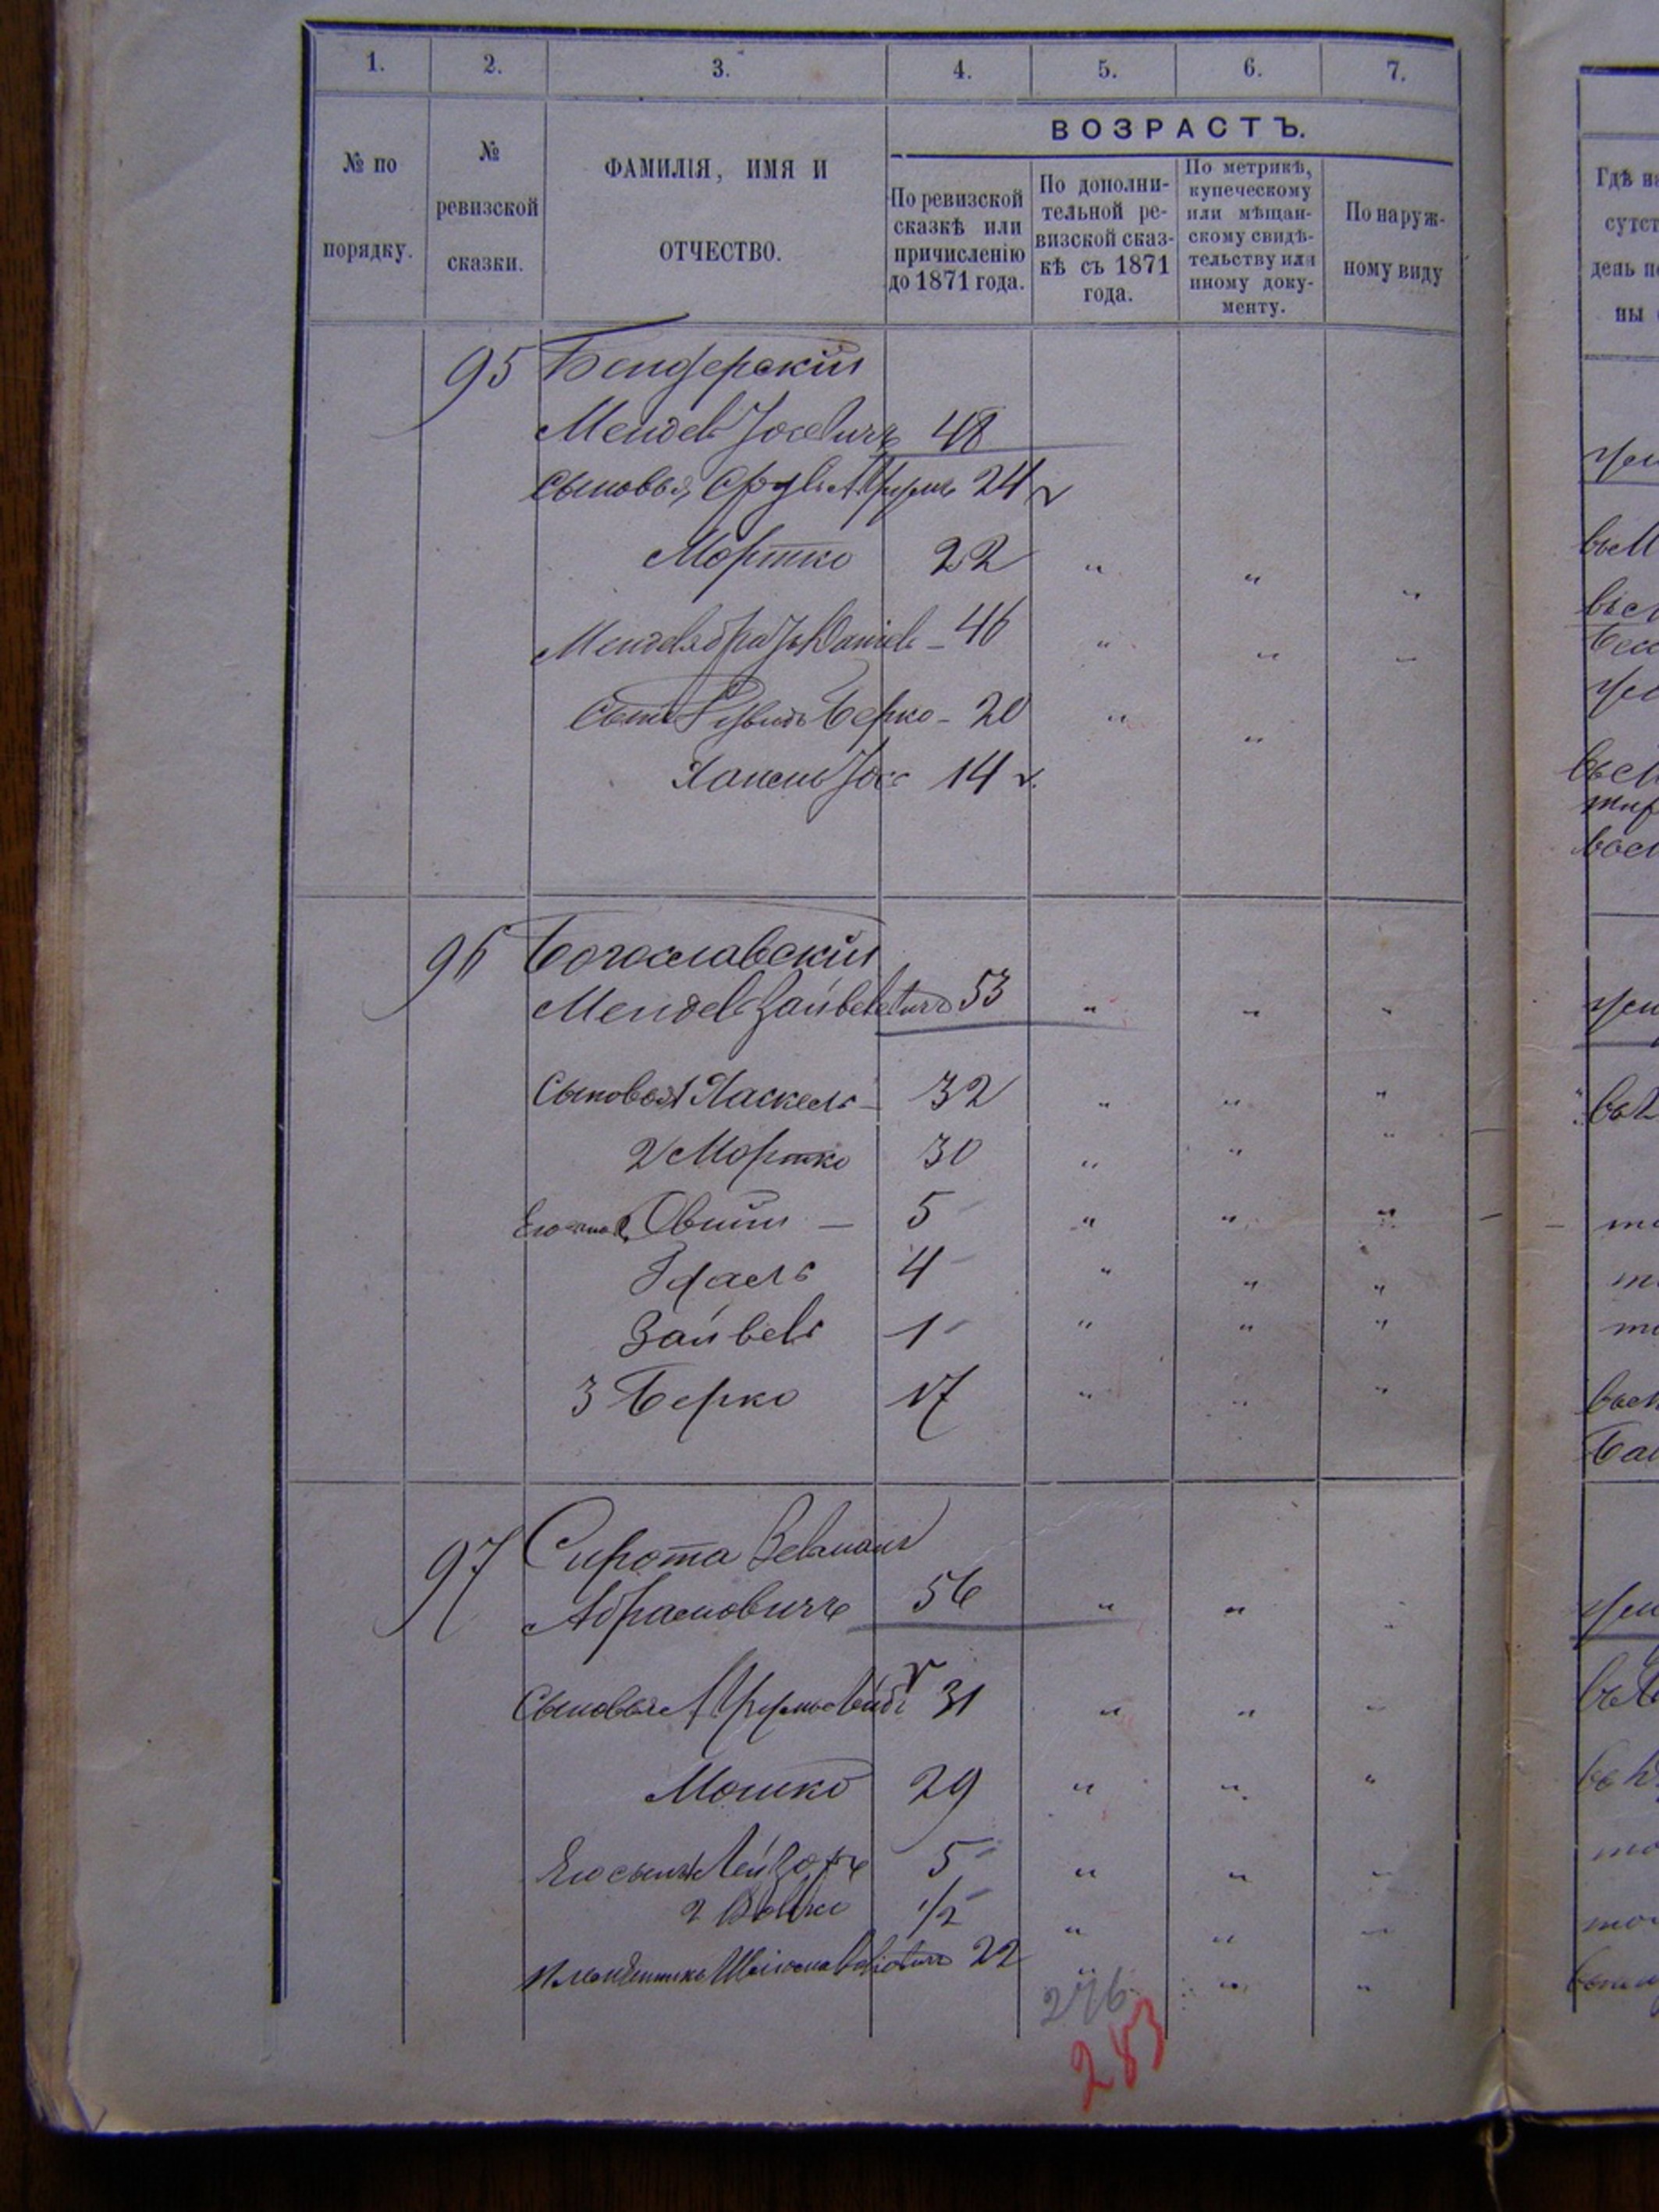 1. 2. 3. 4. 5. 6. 7.
№ по порядку.
№ ревизской сказки.
ФАМИЛІЯ, ИМЯ И ОТЧЕСТВО.
ВОЗРАСТЪ.
По ревизской сказкѣ или причисленію до 1871 года.
По дополнительной ревизской сказкѣ съ 1871 года.
По метрикѣ, купеческому или мѣщанскому свидѣтельству или иному документу.
По наружному виду
95 Бендерскій
Мендель Іосевичъ 48
Сыновья Сруль 24
Мортко 22 " " "
Менделя братъ Даніель - 46 " " "
Берко - 20 " "
Іос 14
96 Богославскій
Мендель Зайвелевичъ 53 " " "
Сыновья 1 Хаскель - 32 " " "
2 Мортко 30 " " "
Овшій - 5 " " "
4 " " "
Зайвель 1 " " "
3 Берко 17 " " "
97 Сирота Зельманъ
Абрамовичъ 56 " " "
Сыновья 31 " " "
Мошко 29 " " "
Его сынъ 1 Лейзоръ 5 " " "
2 Волько 1/2 " " "
Племянникъ 22 " " "
276
283